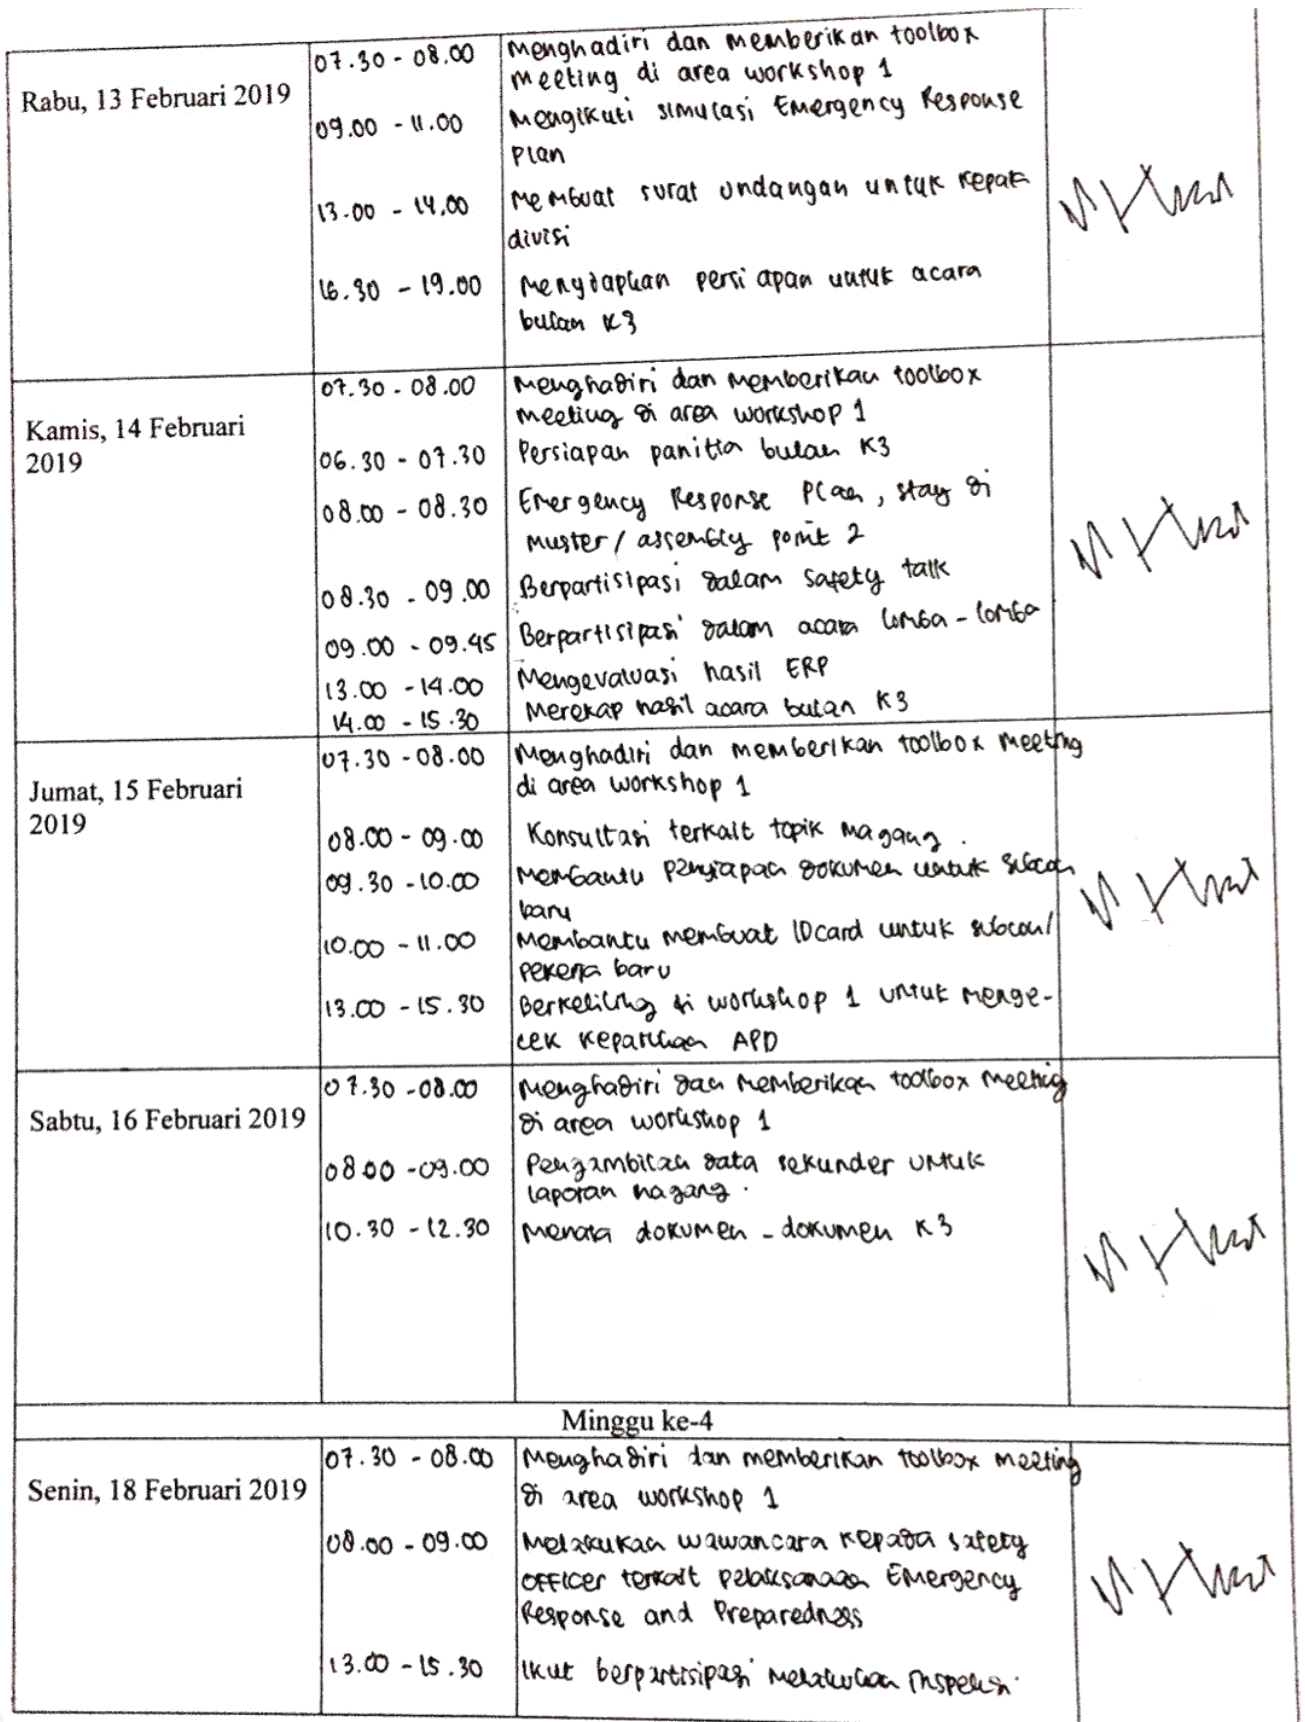 07.30 - 08.00 Menghadiri dan memberikan toolbox
Rabu, 13 Februari 2019 meeting di area workshop 1
09.00 - 11.00 Mengikuti simulasi Emergency Response
Plan
13.00 - 14.00 Membuat surat undangan untuk
divisi
16.30 - 19.00 Menyiapkan persiapan untuk acara
bulan K3
07.30 - 08.00 Menghadiri dan memberikan toolbox
Kamis, 14 Februari meeting di area workshop 1
2019 06.30 - 07.30 Persiapan panitia bulan K3
08.00 - 08.30 Emergency Response Plan, stay di
muster / assembly point 2
08.30 - 09.00 Berpartisipasi dalam safety talk
09.00 - 09.45 Berpartisipasi dalam acara lomba - lomba
13.00 - 14.00 Mengevaluasi hasil ERP
14.00 - 15.30 Merekap hasil acara bulan K3
07.30 - 08.00 Menghadiri dan memberikan toolbox meeting
Jumat, 15 Februari di area workshop 1
2019
08.00 - 09.00 Konsultasi terkait topik magang.
09.30 - 10.00 Membantu penyiapan dokumen untuk subcon
baru
10.00 - 11.00 Membantu membuat ID card untuk subcon/
pekerja baru
13.00 - 15.30 Berkeliling di workshop 1 untuk menge-
cek kepatuhan APD
07.30 - 08.00 Menghadiri dan memberikan toolbox meeting
Sabtu, 16 Februari 2019 di area workshop 1
08.00 - 09.00 Pengambilan data sekunder untuk
laporan magang.
10.30 - 12.30 Menata dokumen - dokumen K3
Minggu ke-4
07.30 - 08.00 Menghadiri dan memberikan toolbox meeting
Senin, 18 Februari 2019 di area workshop 1
08.00 - 09.00 Melakukan wawancara kepada safety
officer terkait pelaksanaan Emergency
Response and Preparedness
13.00 - 15.30 Ikut berpartisipasi melakukan inspeksi.